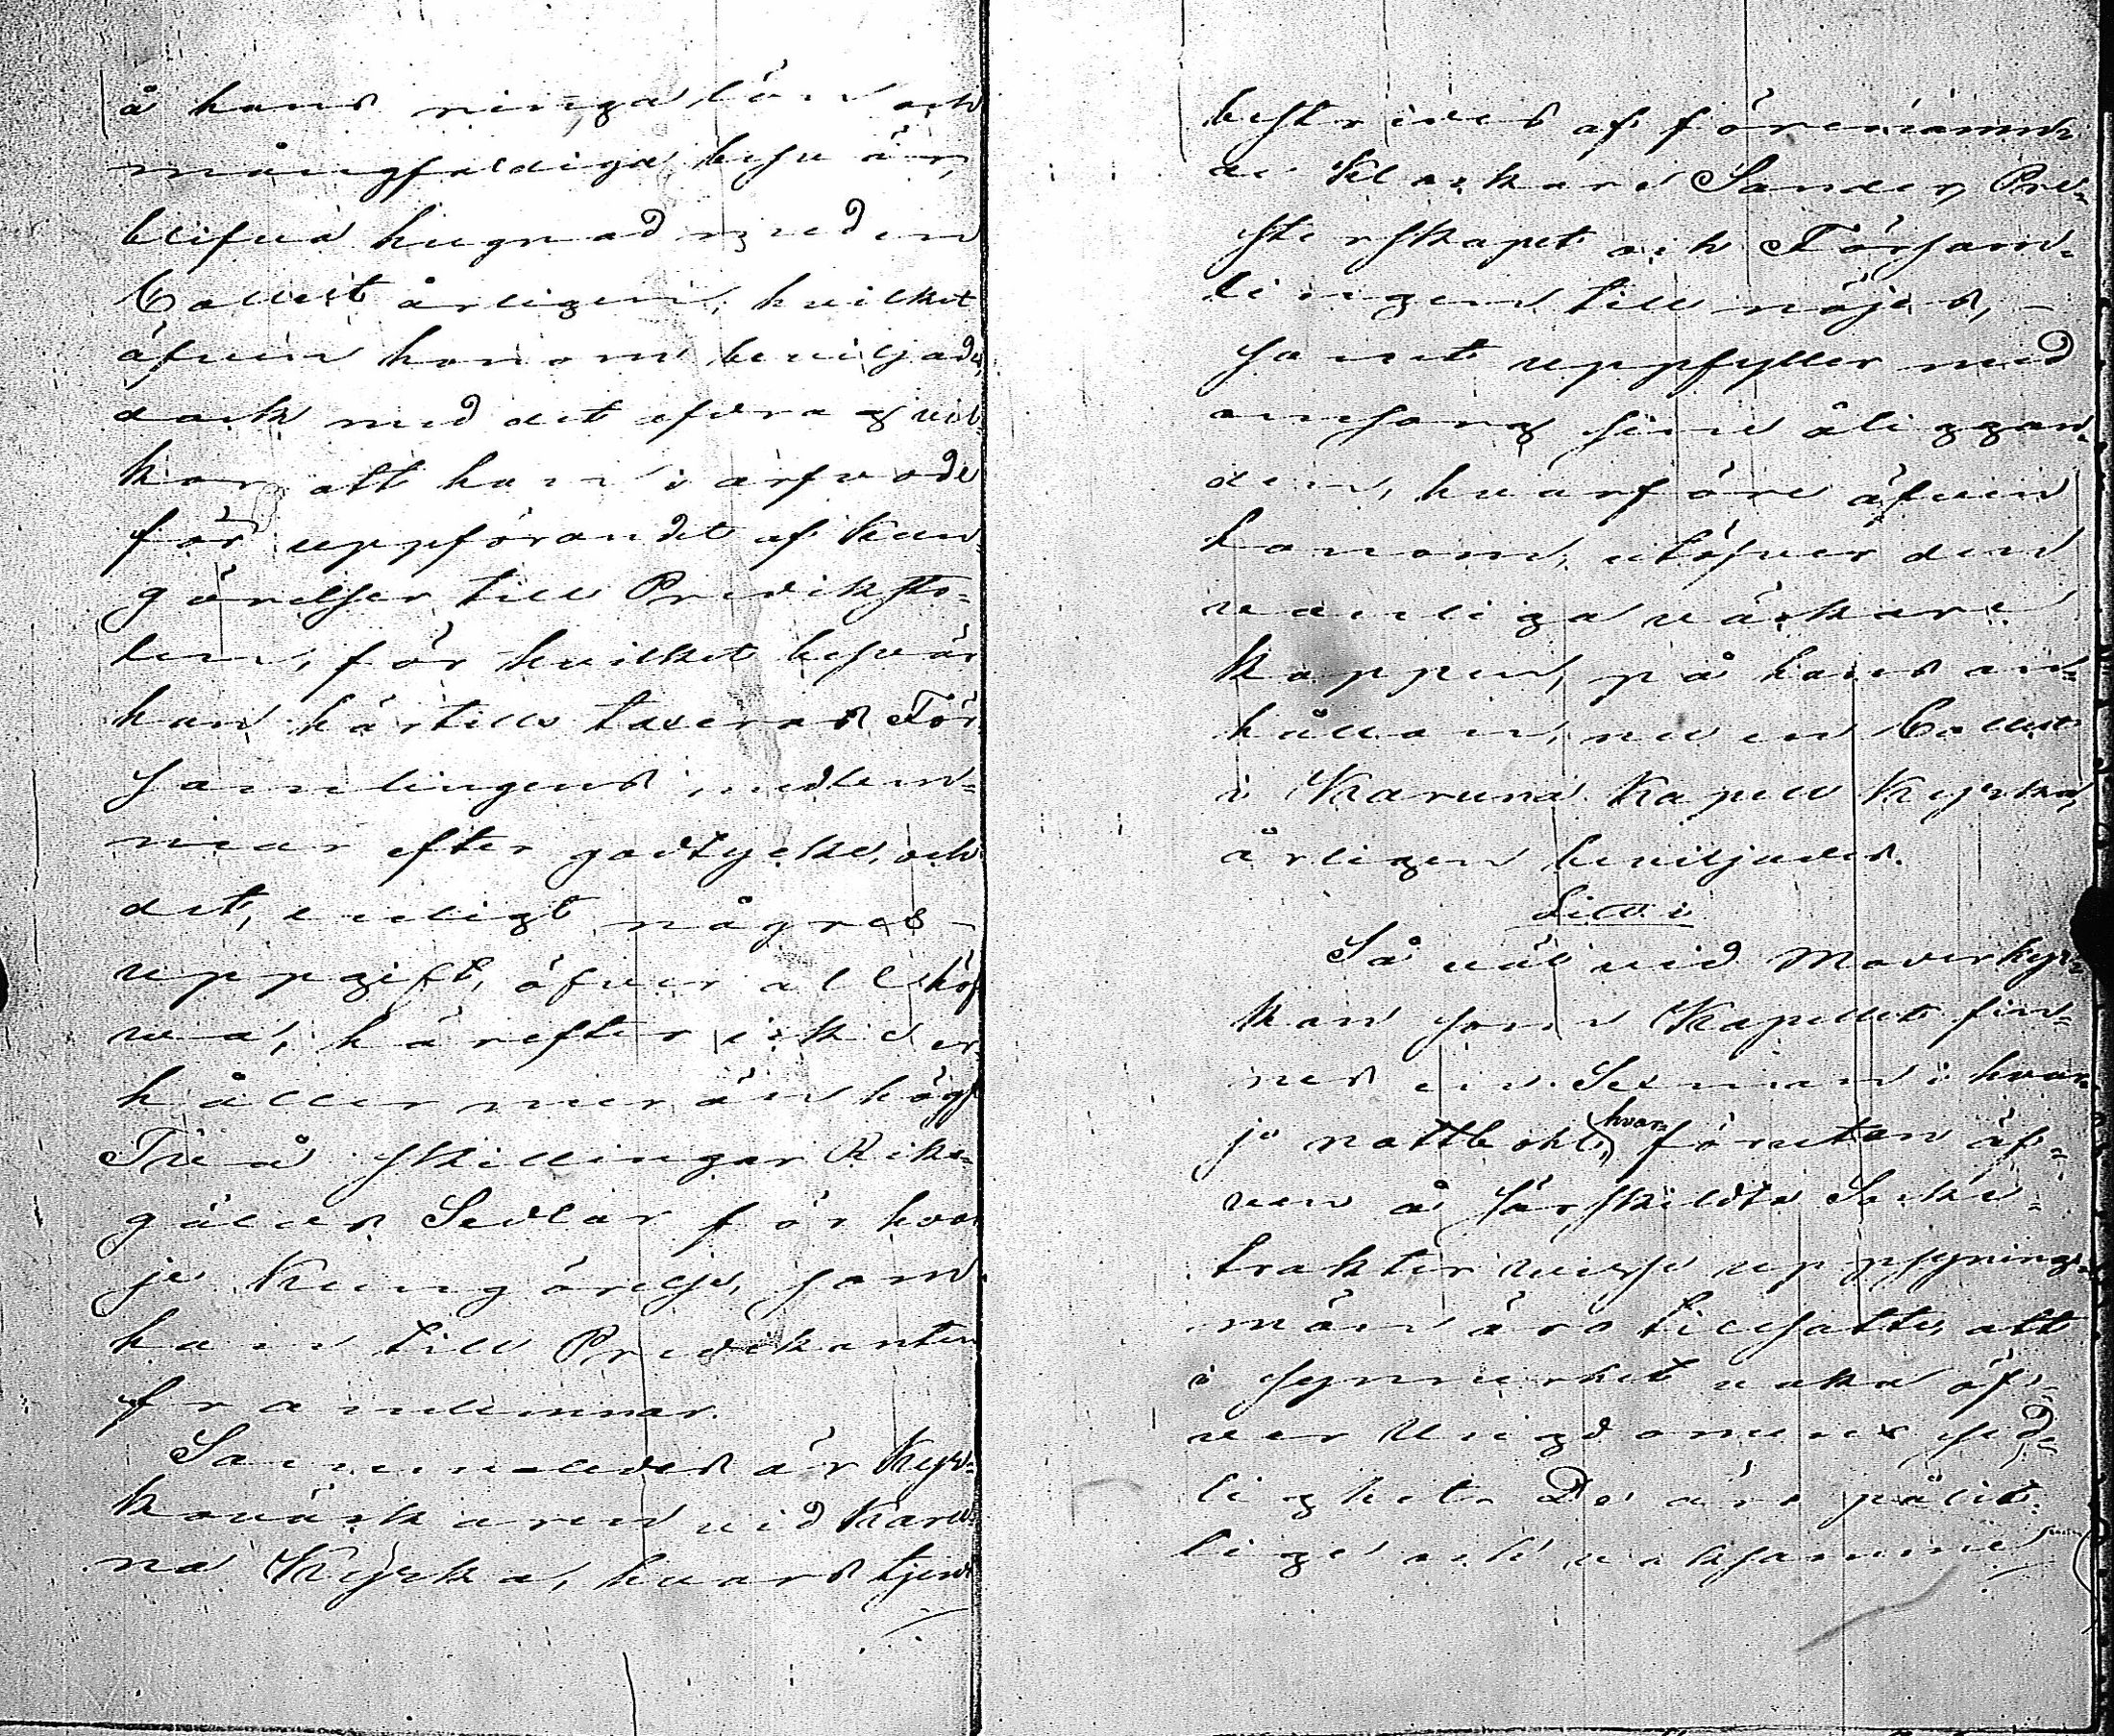 å hans ringa lön och
mångfaldiga besvär,
blifva hugnad med en
Collect årligen, hvilket
äfven honom beviljades,
dock med det afdrag vil-
kor att han i arfvode
för uppförandet af Kun-
görelser till Prediksto-
len, för hvilket besvär
han härtills taxerat För-
samlingens medlem-
mar efter godtycke, och
det, enligt någras
uppgift, öfver all höf-
wa, härefter icke er-
håller mer än högst
Två skillingar Riks-
gälds Sedlar för hvar-
je Kungörelse, som
han till Predikanten
framlemnar.
Sammaledes är Kyr-
kováktaren vid Karu-
na Kyrka, hvars tjenst
bestrides af förenämn-
de Klockare Sander, Pre-
sterskapet och Försam-
lingen till nöjes, –
samt uppfyller med
omsorg sine åliggan-
den, hvarföre äfven
honom, utöfver den
vanliga väckare
kappen, på hans an-
hållan, nu en Collect
i Karuna Kapell Kyrka,
årligen beviljades.
Litt. i
Så väl vid Moderkyr-
kan som Kapellet fin-
nes en Sexman i hvar-
je rottbohl, hvar-förutan äf-
ven å särskildte Socke-
trakter wisse uppsynings-
män äro tillsatte, att
i synnerhet vaka öf-
ver Ungdomens sed-
lighet. De äro pålit-
lige och vaksamme